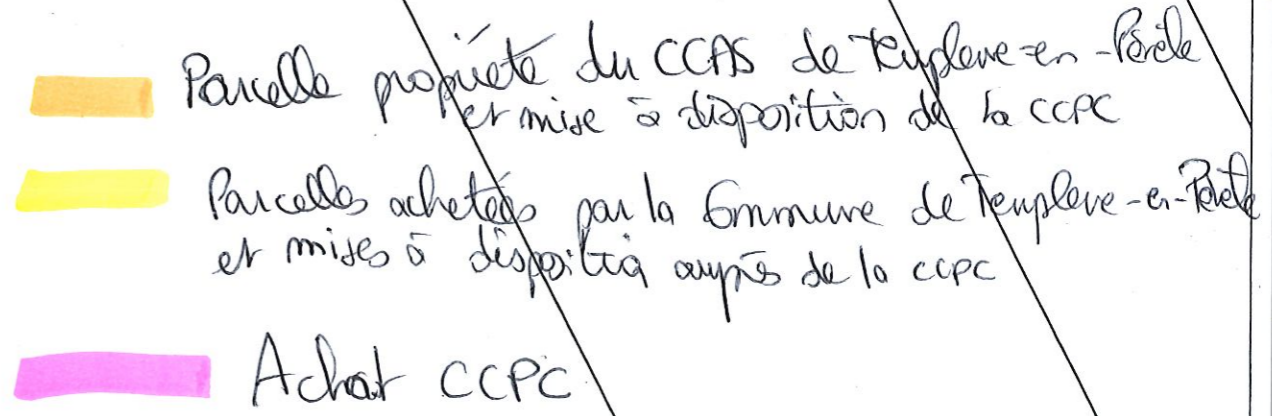 Parcelle propriété du CCAS de Templeuve-en-Pévèle
et mise à disposition de la CCPC
Parcelles achetées par la Commune de Templeuve-en-Pévèle
et mises à disposition auprès de la CCPC
Achat CCPC